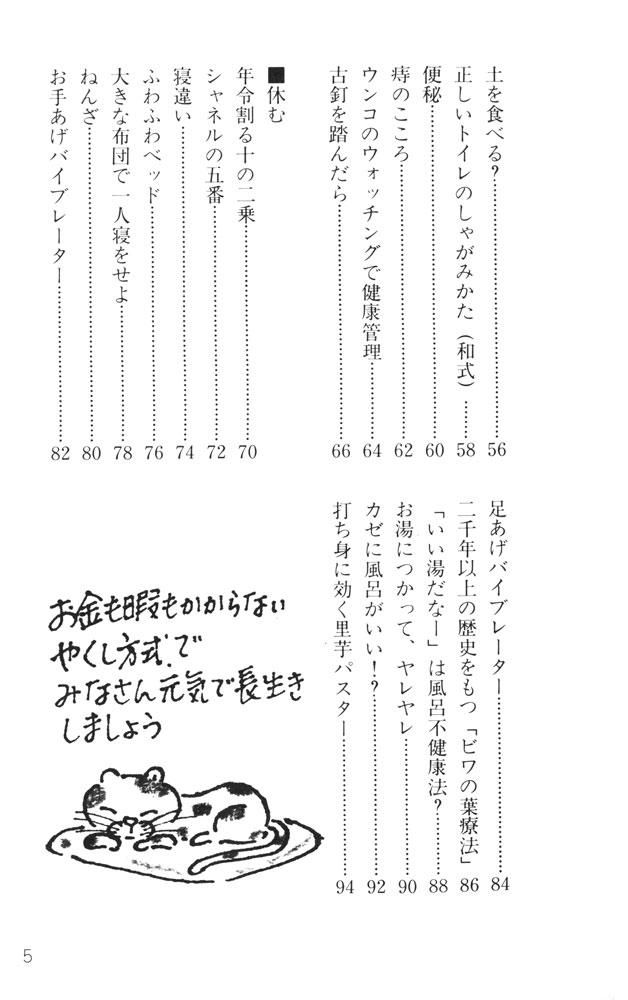 土を食べる?……56
正しいトイレのしゃがみかた(和式)……58
便秘……60
痔のこころ……62
ウンコのウォッチングで健康管理……64
古釘を踏んだら……66
■休む
年令割る十の二乗……70
シャネルの五番……72
寝違い……74
ふわふわベッド……76
大きな布団で一人寝をせよ……78
ねんざ……80
お手あげバイブレーター……82
足あげバイブレーター……84
二千年以上の歴史をもつ「ビワの葉療法」 86
「いい湯だなー」は風呂不健康法?……88
お湯につかって、ヤレヤレ……90
カゼに風呂がいい!?……92
打ち身に効く里芋パスター……94
お金も暇もかからない
やくし方式で
みなさん元気で長生き
しましょう
5